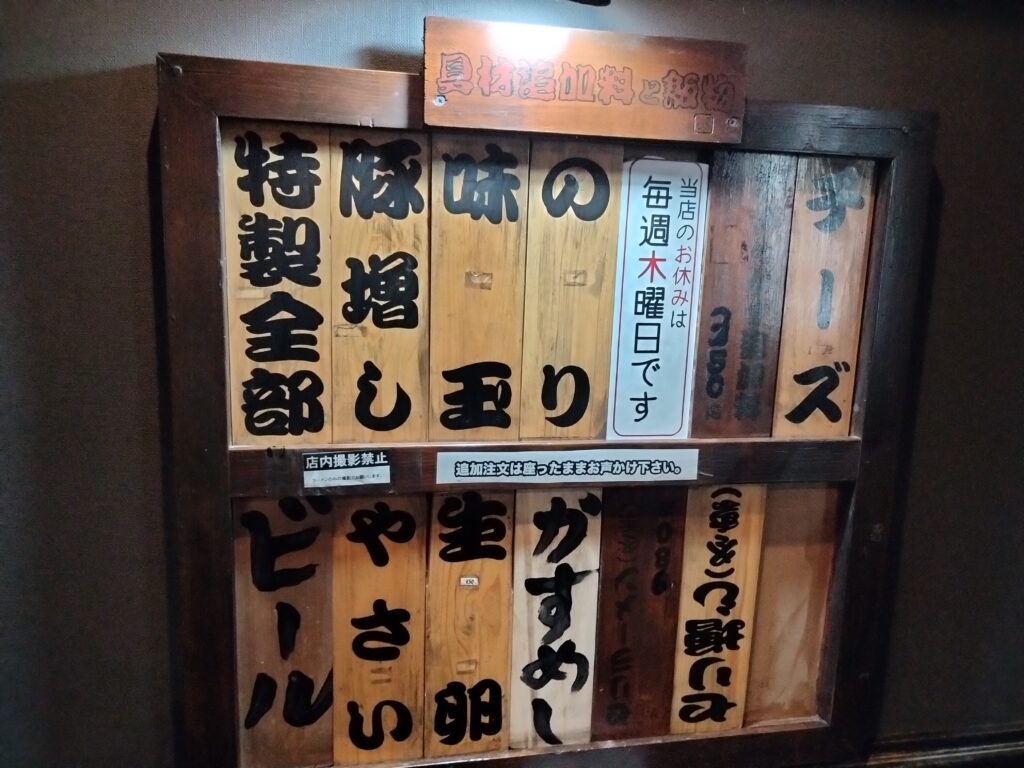 具材追加料と飯物
特製全部
豚増し
味玉
のり
当店のお休みは
毎週木曜日です
チーズ
店内撮影禁止
追加注文は座ったままお声かけ下さい。
ビール
やさい
生卵
がすめし
セリ増し